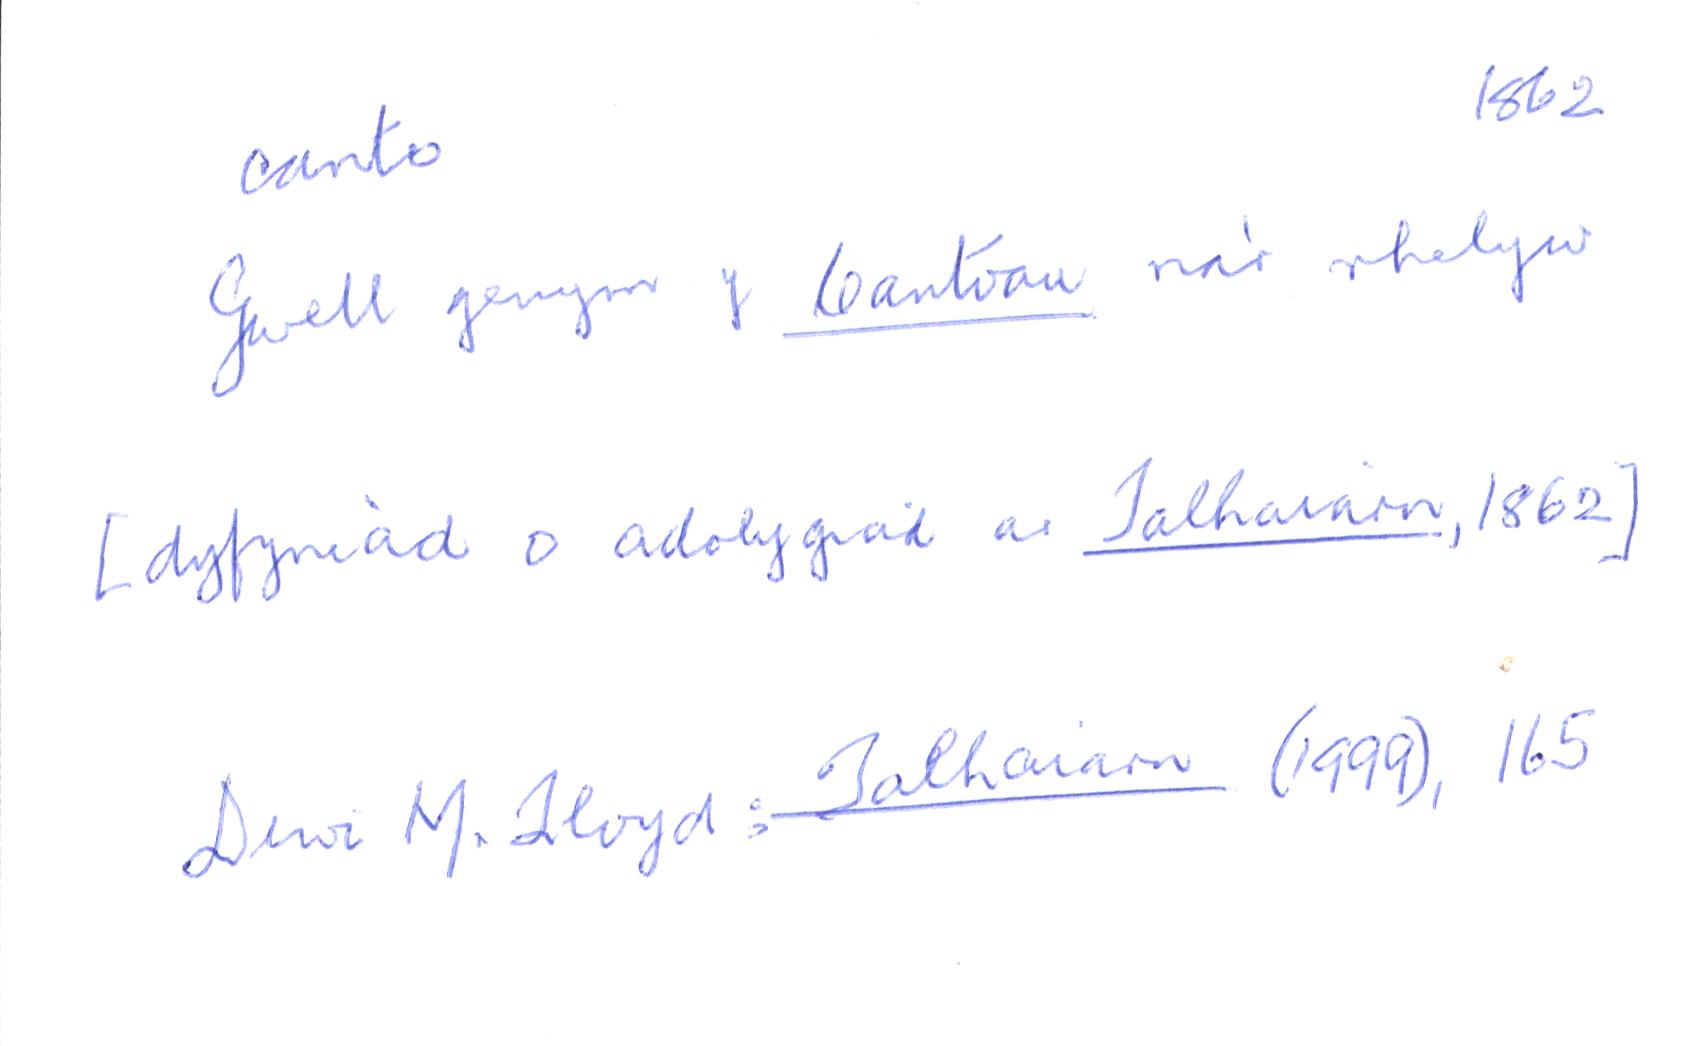 1862
canto
Gwell genym y Cantoau na'r rhelyw
[dyfyniad o adolygiad ar Talhaiarn, 1862]
Dewi M. Lloyd: Talhaiarn (1999), 165